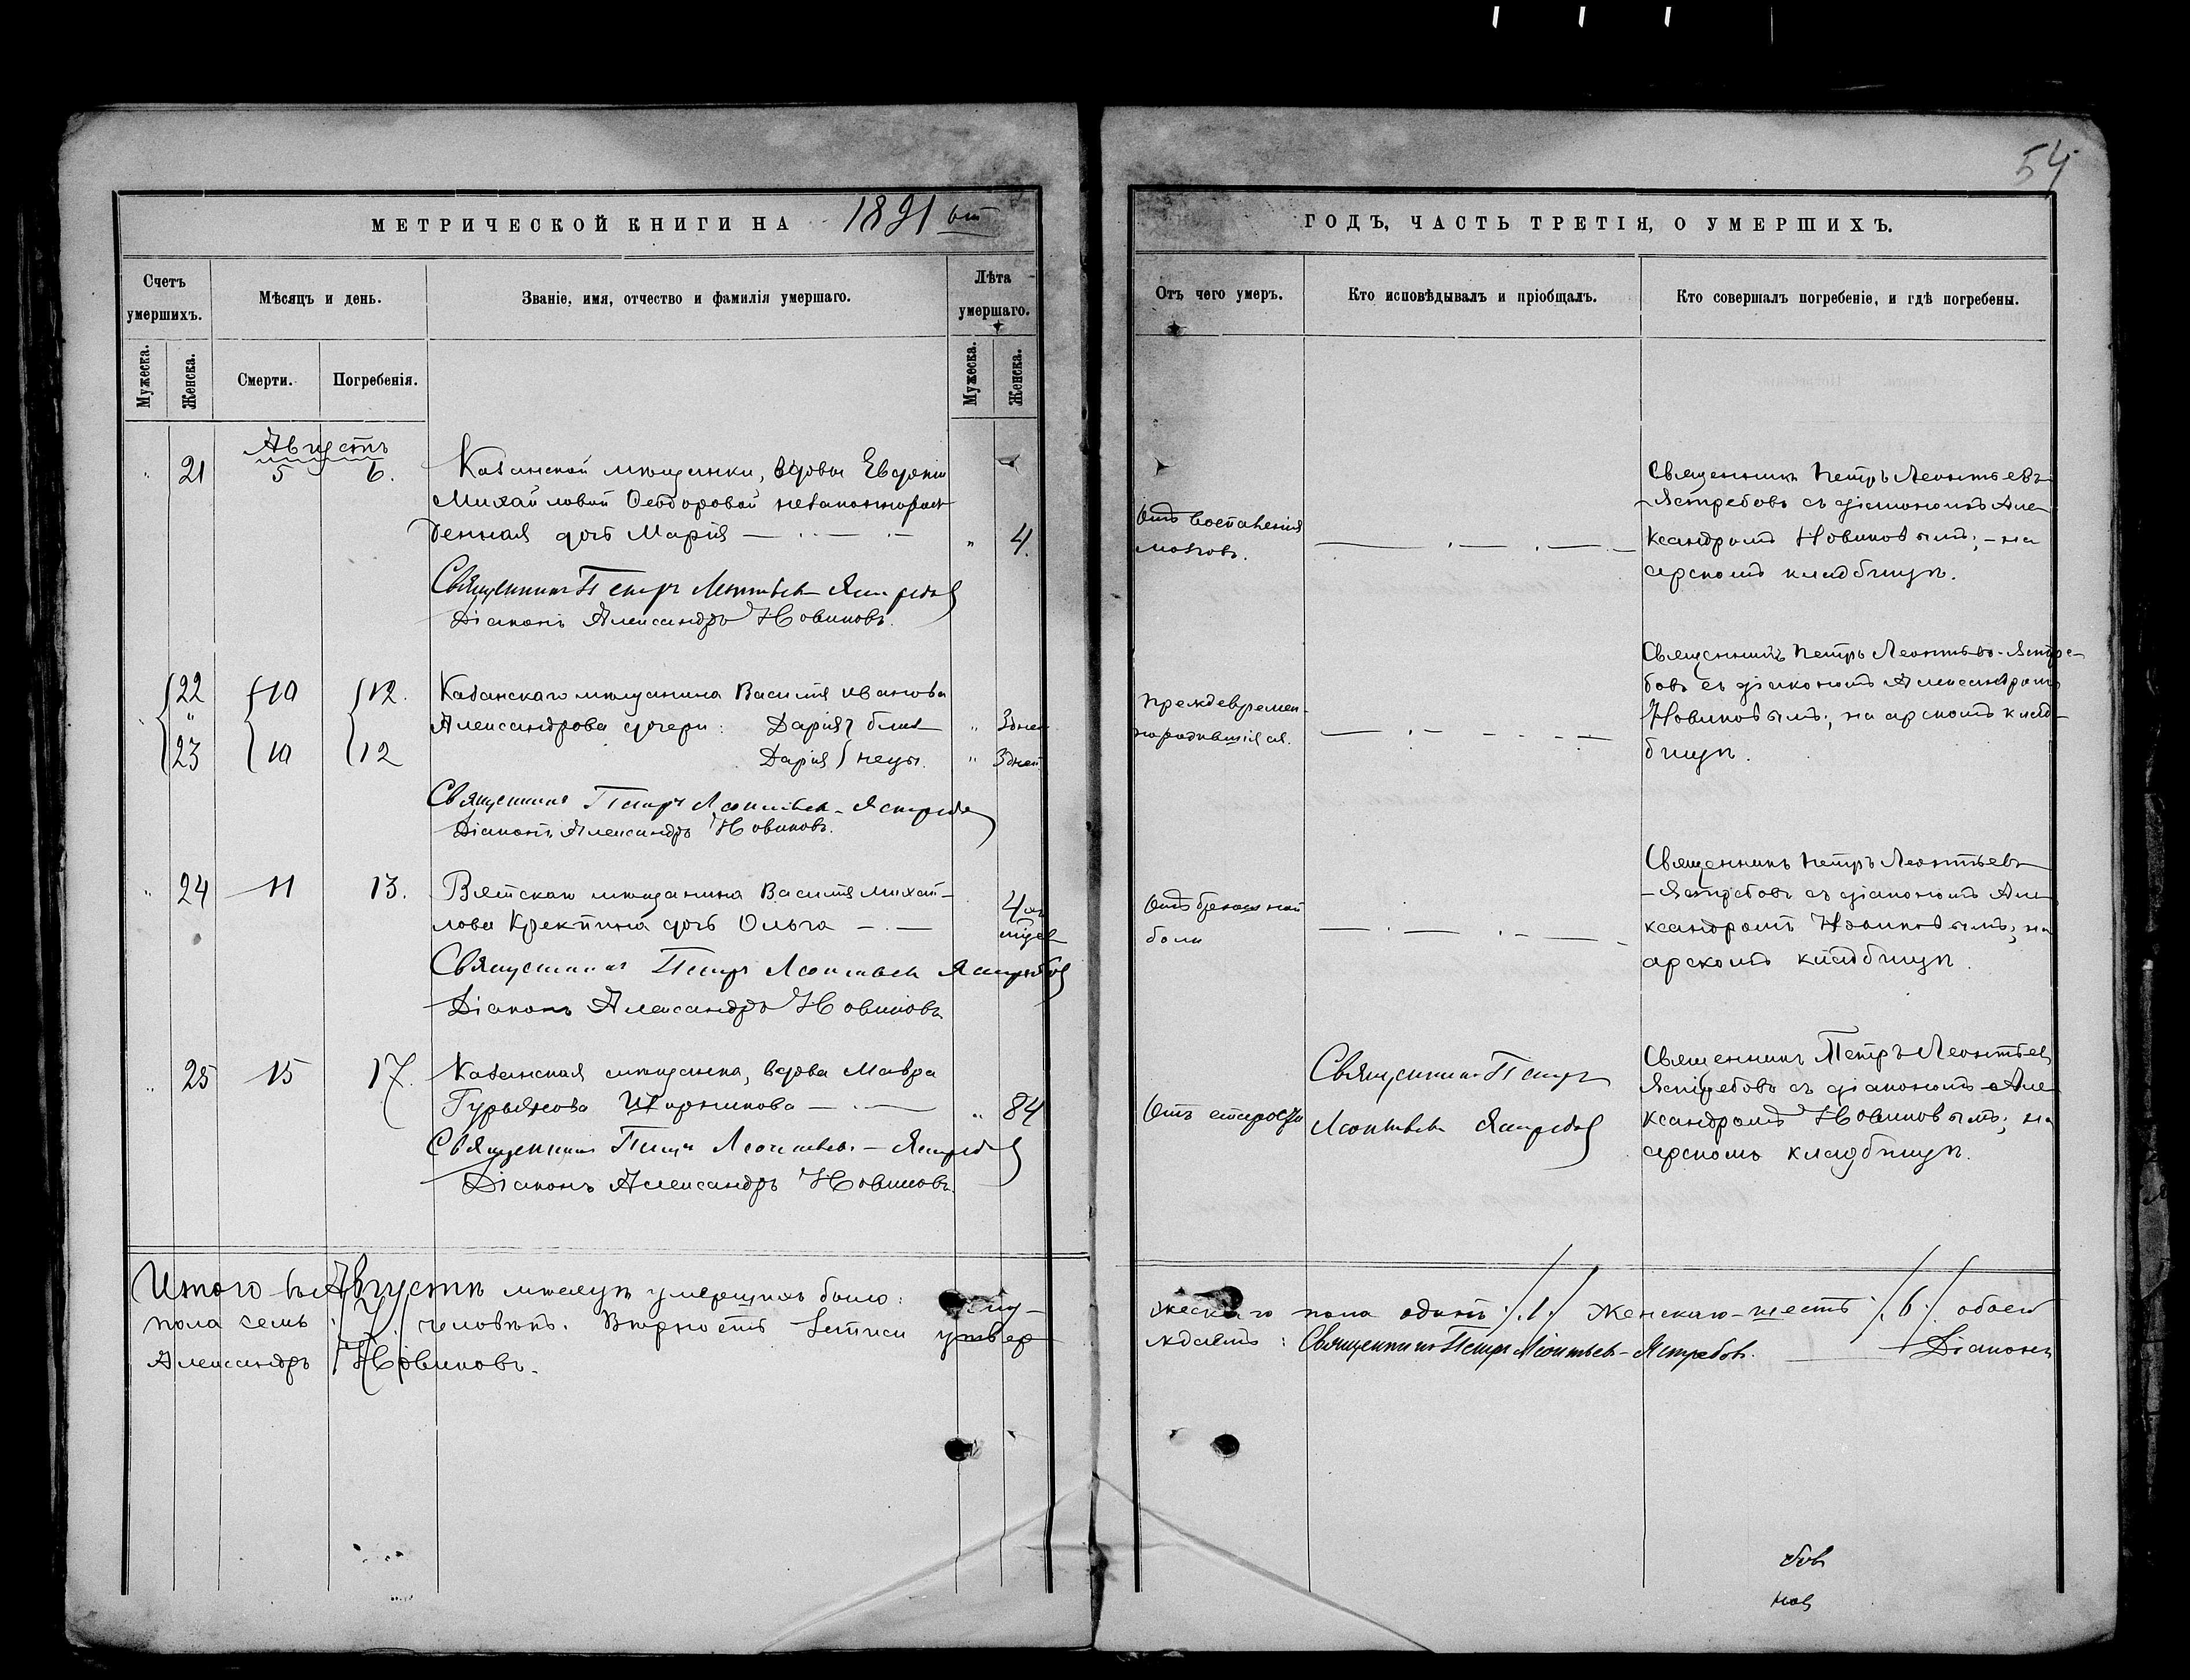 54
МЕТРИЧЕСКОЙ КНИГИ НА 1891 ый
ГОДЪ, ЧАСТЬ ТРЕТІЯ, О УМЕРШИХЪ.
Счетъ умершихъ.
Мѣсяцъ и день.
Званіе, имя, отчество и фамилія умершаго.
Лѣта умершаго.
Отъ чего умеръ.
Кто исповѣдывалъ и пріобщалъ.
Кто совершалъ погребеніе, и гдѣ погребены.
Мужеска.
Женска.
Смерти.
Погребенія.
Мужеска.
Женска.
Августъ
" 21 5 6. Казанской мѣщанки, вдовы Евдокіи
Михайловой Ѳеодоровой незаконнорож
денная дочь Марія — " 4.
Священникъ Петръ Леонтьевъ Ястребовъ
Діаконъ Александръ Новиковъ.
Отъ воспаленія
мозговъ.
Священникъ Петръ Леонтьевъ
Ястребовъ съ діакономъ Але
ксандромъ Новиковымъ; - на
арскомъ кладбищѣ.
22 10 12. Казанскаго мѣщанина Василія Иванова
" Александрова дочери: Дарія } близ " 3 дней
23 10 12 Дарія } нецы. " 3 дней
Священникъ Петръ Леонтьевъ - Ястребовъ
Діаконъ Александръ Новиковъ.
Преждевремен-
но родившіяся.
Священникъ Петръ Леонтьевъ - Ястре-
бовъ съ діакономъ Александромъ
Новиковымъ; на арскомъ клад-
бищѣ.
" 24 11 13. Вятскаго мѣщанина Василія Михай-
лова Крекнина дочь Ольга — 4 мѣ
сяцев
Священникъ Петръ Леонтьевъ Ястребовъ
Діаконъ Александръ Новиковъ
Отъ брюшной
боли
Священникъ Петръ Леонтьевъ
- Ястребовъ съ діакономъ Але
ксандромъ Новиковымъ; на
арскомъ кладбищѣ.
" 25 15 17. Казанская мѣщанка, вдова Мавра
Гурьянова — " 84
Священникъ Петръ Леонтьевъ - Ястребовъ
Діаконъ Александръ Новиковъ.
Отъ старости
Священникъ Петръ
Леонтьевъ Ястребовъ
Священникъ Петръ Леонтьев
Ястребовъ съ діакономъ Але
ксандромъ Новиковымъ; на
арскомъ кладбищѣ.
Итого въ Августѣ мѣсяцѣ умершихъ было: му-
жескаго пола одинъ /.1./ Женскаго - шесть /.6./ обоего
пола семь /.7./ человѣкъ. Вѣрность записи утвер
ждаемъ: Священникъ Петръ Леонтьевъ - Ястребовъ. Діаконъ
Александръ Новиковъ.
бовъ
новъ